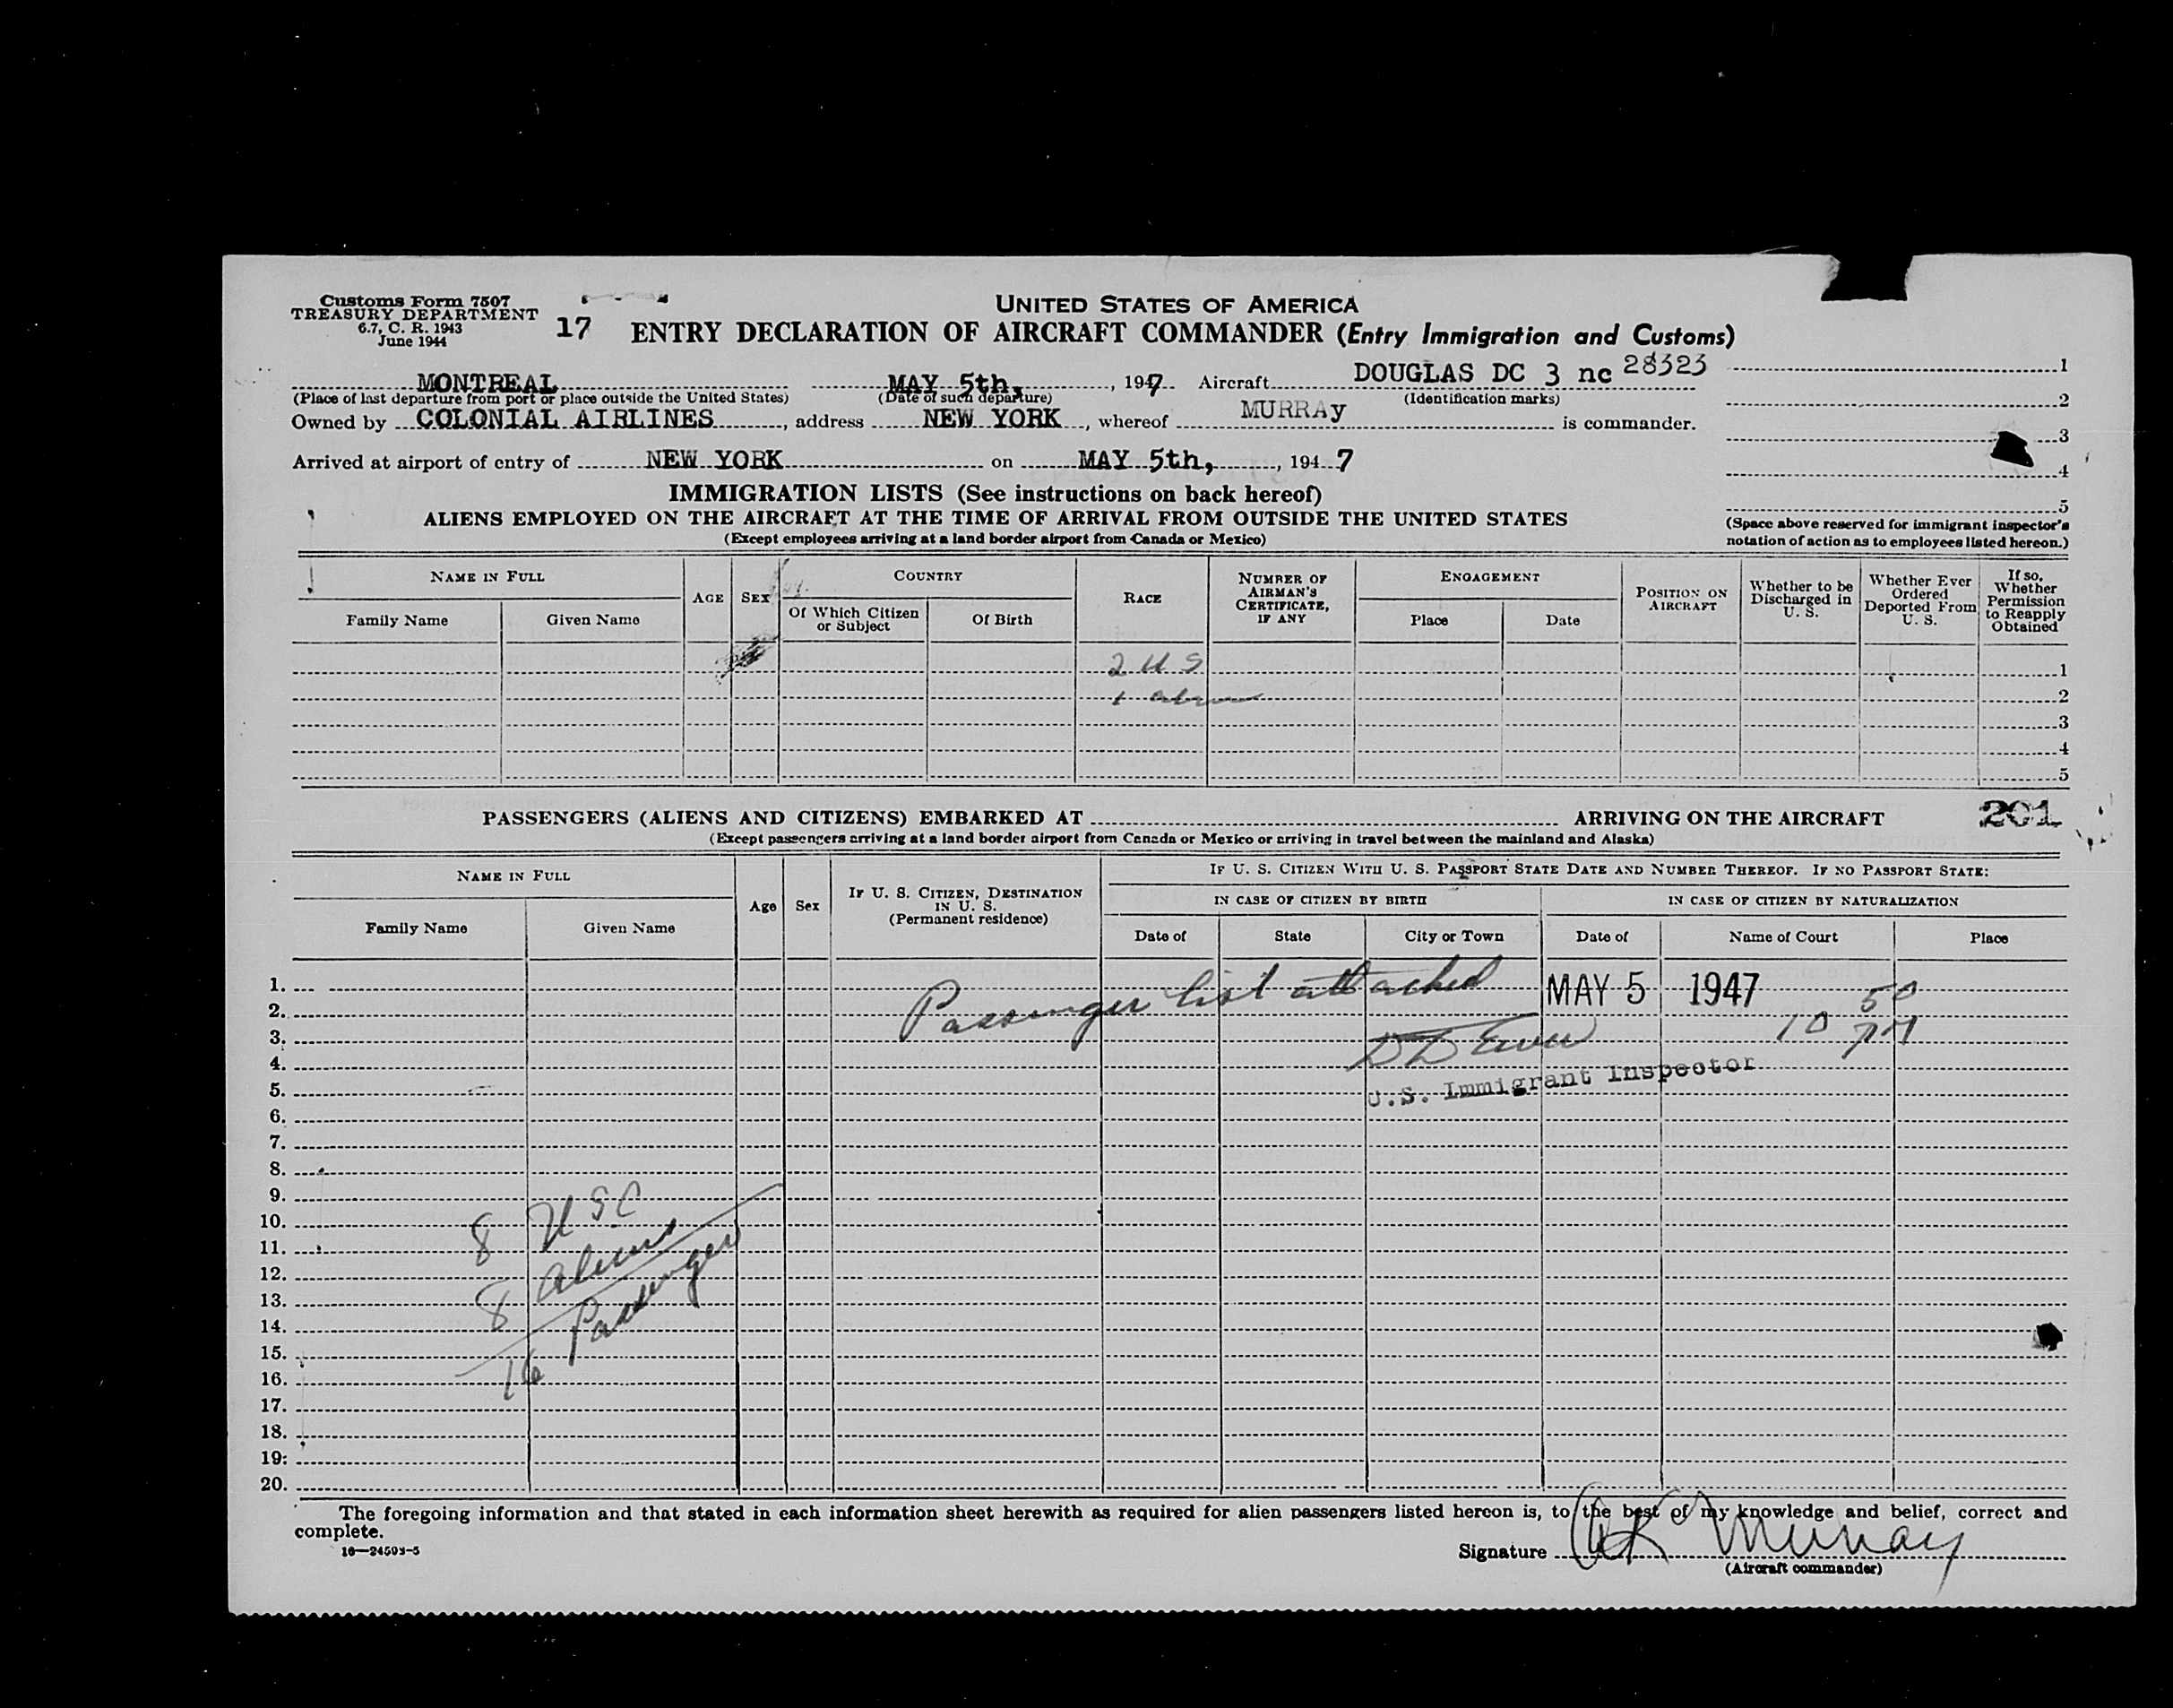 Customs Form 7507
TREASURY DEPARTMENT
6.7, C. R. 1943
June 1944
17
UNITED STATES OF AMERICA
ENTRY DECLARATION OF AIRCRAFT COMMANDER (Entry Immigration and Customs)
MONTREAL MAY 5th, , 1947 Aircraft DOUGLAS DC 3 nc 28323
(Place of last departure from port or place outside the United States) (Date of such departure) (Identification marks)
Owned by COLONIAL AIRLINES , address NEW YORK , whereof MURRAY is commander.
Arrived at airport of entry of NEW YORK on MAY 5th, , 1947
1
2
3
4
5
(Space above reserved for immigrant inspector's
notation of action as to employees listed hereon.)
IMMIGRATION LISTS (See instructions on back hereof)
ALIENS EMPLOYED ON THE AIRCRAFT AT THE TIME OF ARRIVAL FROM OUTSIDE THE UNITED STATES
(Except employees arriving at a land border airport from Canada or Mexico)
NAME IN FULL
Family Name Given Name
AGE SEX
COUNTRY
Of Which Citizen or Subject Of Birth
RACE
NUMBER OF AIRMAN'S CERTIFICATE, IF ANY
ENGAGEMENT
Place Date
POSITION ON AIRCRAFT
Whether to be Discharged in U. S.
Whether Ever Ordered Deported From U. S.
If so, Whether Permission to Reapply Obtained
2 U S 1
1 alien 2
3
4
5
PASSENGERS (ALIENS AND CITIZENS) EMBARKED AT ARRIVING ON THE AIRCRAFT 201
(Except passengers arriving at a land border airport from Canada or Mexico or arriving in travel between the mainland and Alaska)
NAME IN FULL
Family Name Given Name
Age Sex
IF U. S. CITIZEN, DESTINATION IN U. S. (Permanent residence)
IF U. S. CITIZEN WITH U. S. PASSPORT STATE DATE AND NUMBER THEREOF. IF NO PASSPORT STATE:
IN CASE OF CITIZEN BY BIRTH IN CASE OF CITIZEN BY NATURALIZATION
Date of State City or Town Date of Name of Court Place
1.
Passenger list attached MAY 5 1947
2.
10 50 PM
3.
4.
U.S. Immigrant Inspector
5.
6.
7.
8.
9.
10.
8 USC
11.
12.
8 aliens
13.
14.
15.
16 Passengers
16.
17.
18.
19.
20.
The foregoing information and that stated in each information sheet herewith as required for alien passengers listed hereon is, to the best of my knowledge and belief, correct and
complete.
16—24593-5
Signature Murray
(Aircraft commander)